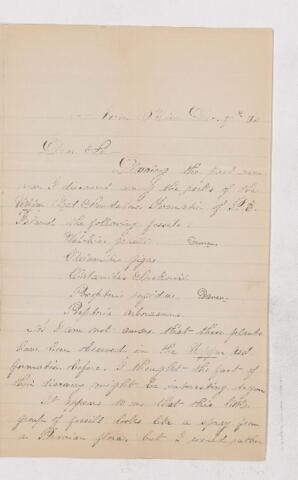 Dear Sir
During the past sum-
mer I discovered among the rocks of the
Upper Red Sandstone formation of P. E.
Island the following fossils.
Walchia
Calamites gigas
Calamites Suckovii
rigidus Dawn.
As I am not aware that these plants
have been observed in the Upper red
formation before, I thought the fact of
their discovery might be interesting to you
It appears to me that this little
group of fossils looks like a spray from
a Permian flora, but I would rather